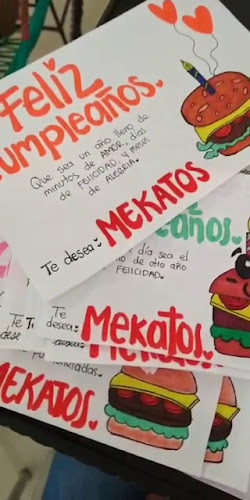 Feliz
cumpleaños.
Que sea un año lleno de
minutos de AMOR, días
de FELICIDAD y meses
de ALEGRÍA.
Te desea:
MEKATOS
pleaños.
día sea el
de otro año
FELICIDAD.
Te
desea:
Mekatos.
Te
MEKATOS.